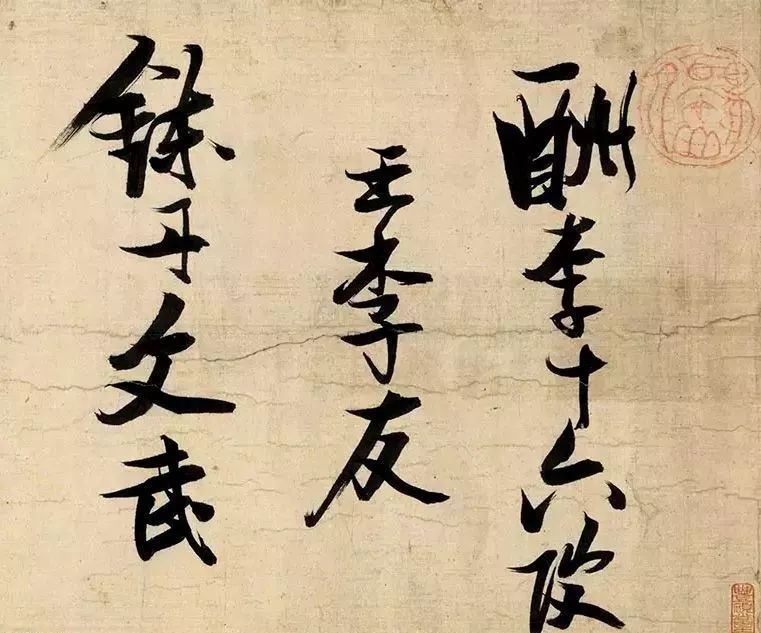 酬李十六岐
王季友
鍊丹文武